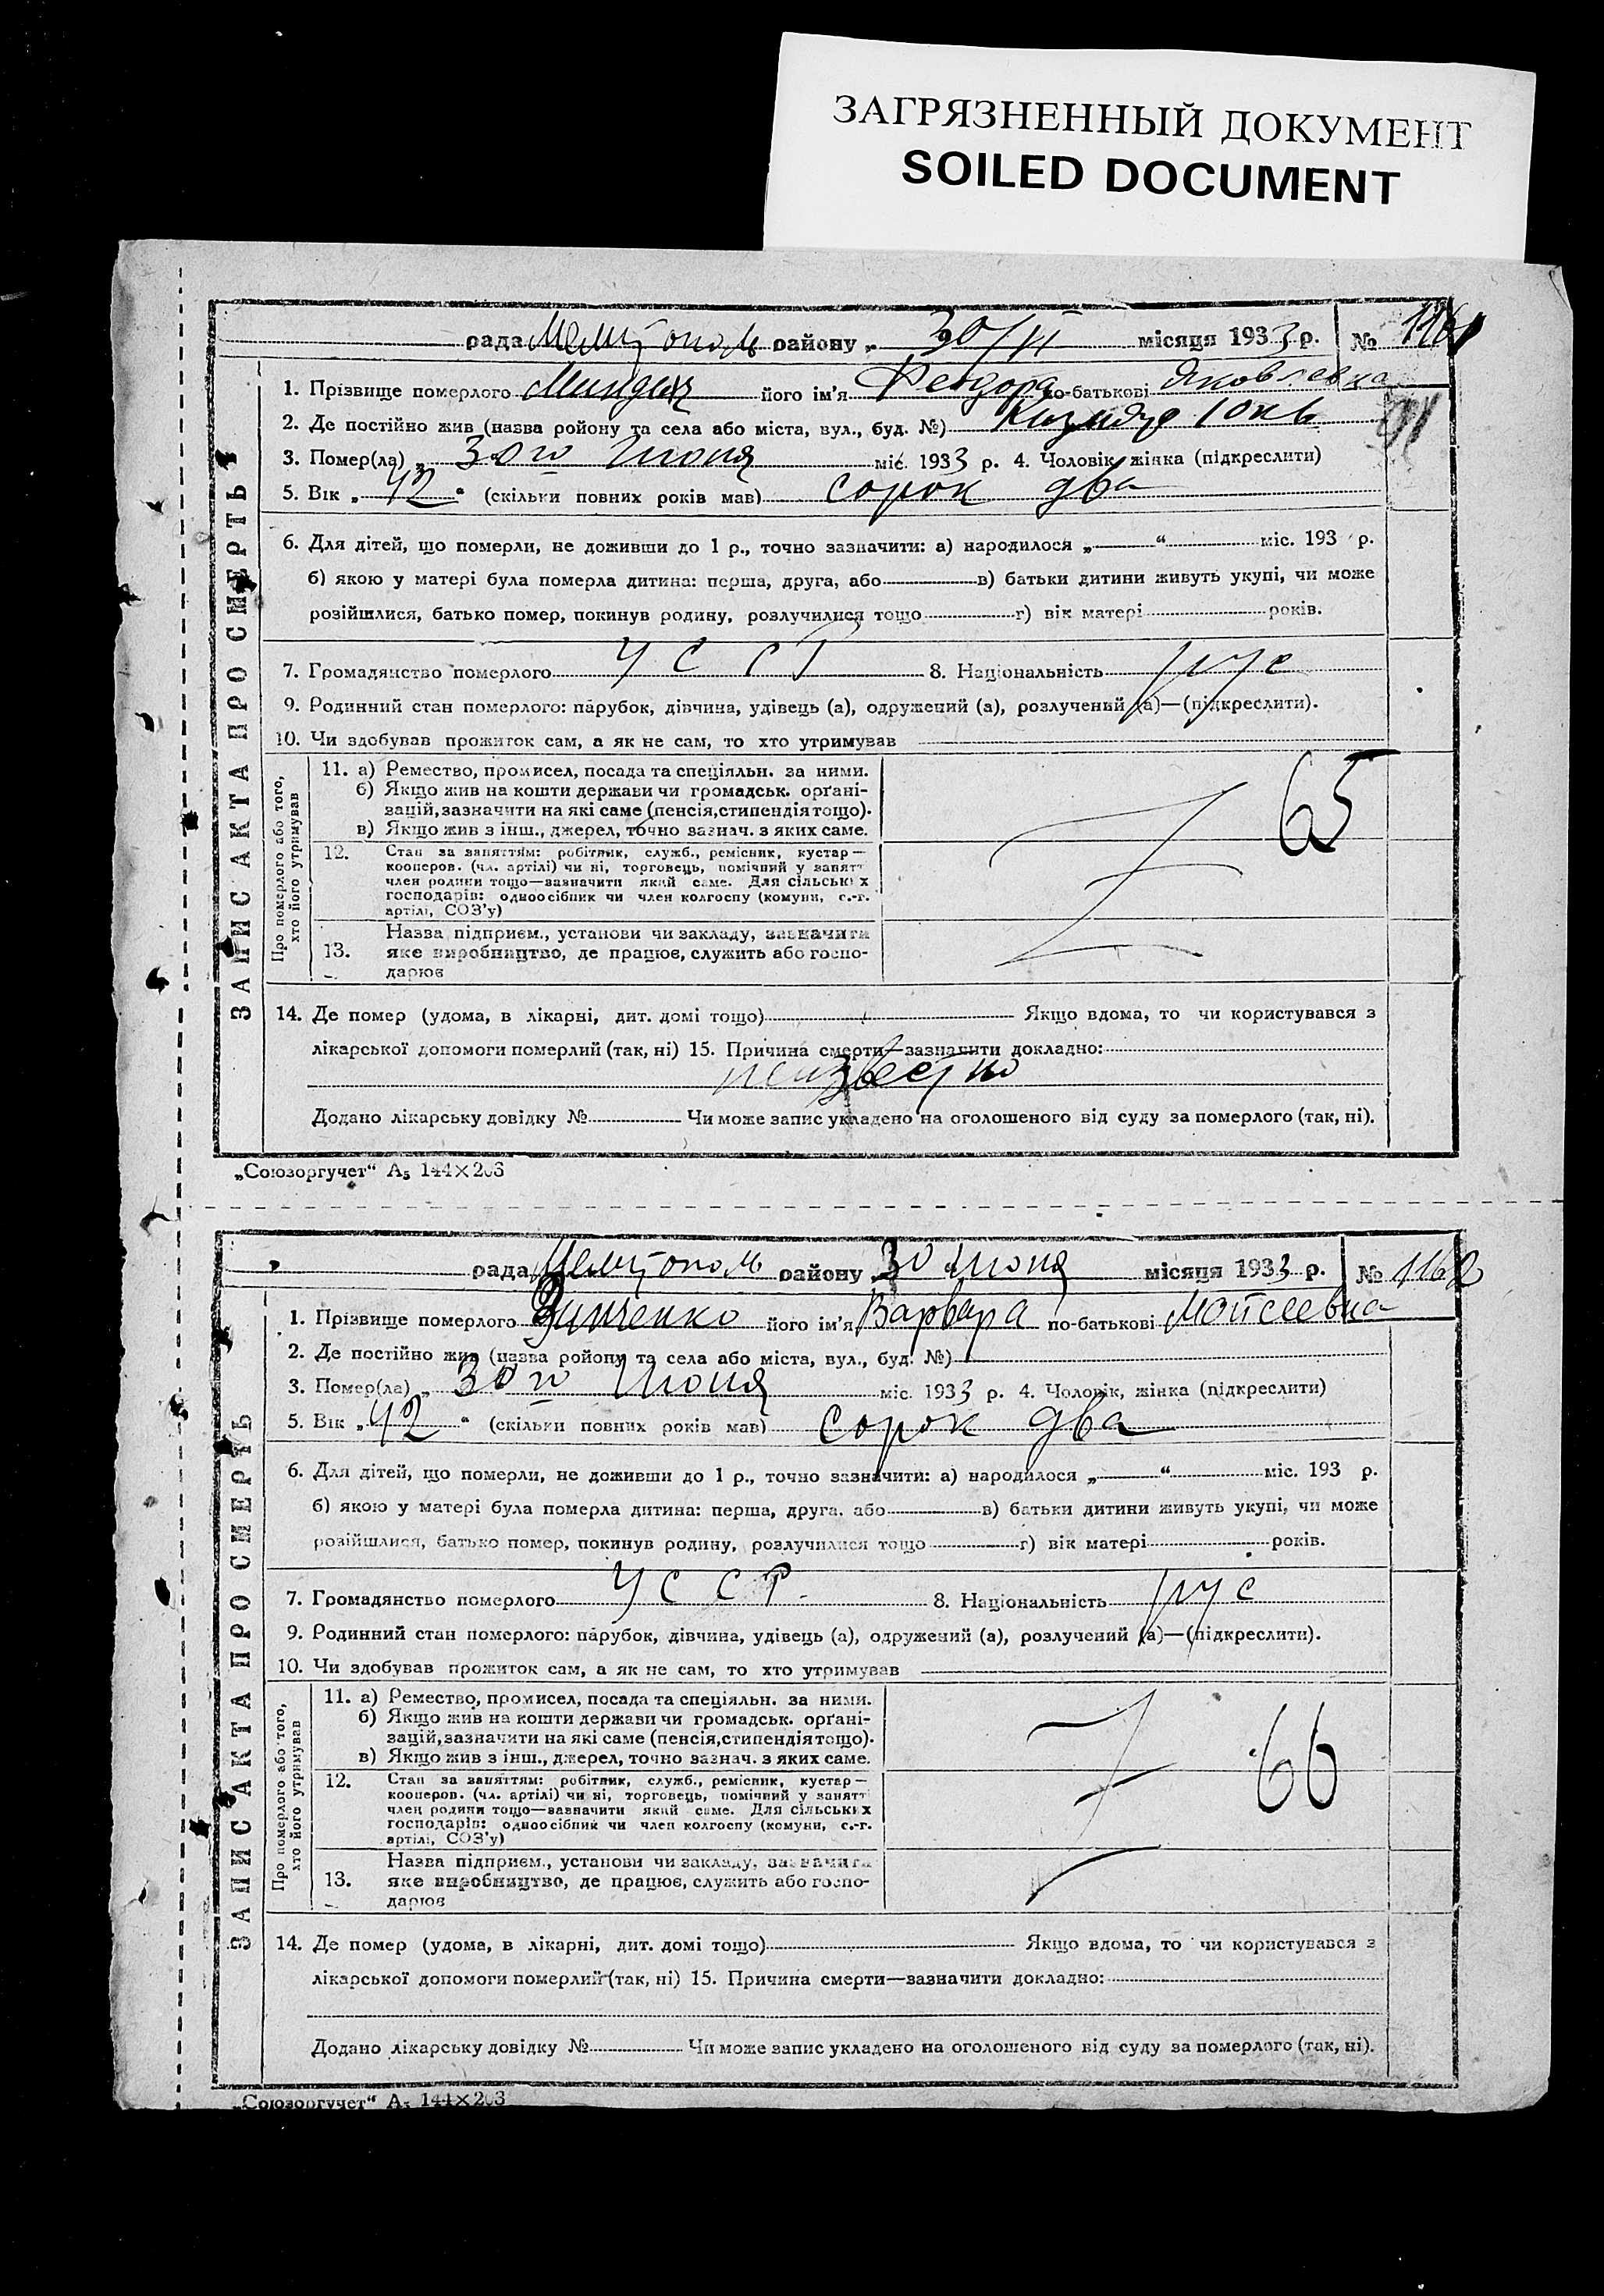 ЗАГРЯЗНЕННЫЙ ДОКУМЕНТ
SOILED DOCUMENT
рада Мелитополь району „ 30/VI місяця 1933 р. № 1161
1. Прізвище померлого його ім'я Феодора по-батькові Яковлевна
2. Де постійно жив (назва ройону та села або міста, вул., буд. №)
3. Помер(ла) „ 30го Июня міс. 1933 р. 4. Чоловік, жінка (підкреслити)
5. Вік „ 42 “ (скільки повних років мав) сорок два
6. Для дітей, що померли, не доживши до 1 р., точно зазначити: а) народилося „ “ міс. 193 р.
б) якою у матері була померла дитина: перша, друга, або в) батьки дитини живуть укупі, чи може
розійшлися, батько помер, покинув родину, розлучилися тощо г) вік матері років.
7. Громадянство померлого УССР 8. Національність рус
9. Родинний стан померлого: парубок, дівчина, удівець (а), одружений (а), розлучений (а)—(підкреслити).
10. Чи здобував прожиток сам, а як не сам, то хто утримував
ЗАПИС АКТА ПРО СМЕРТЬ
Про померлого або того, хто його утримував
11. а) Ремество, промисел, посада та спеціяльн. за ними.
б) Якщо жив на кошти держави чи громадськ. орґані-
зацій, зазначити на які саме (пенсія, стипендія тощо).
в) Якщо жив з інш., джерел, точно зазнач. з яких саме.
65
12. Стан за заняттям: робітник, служб., ремісник, кустар—
кооперов. (чл. артілі) чи ні, торговець, помічний у занятт
член родини тощо—зазначити який саме. Для сільських
господарів: одноосібник чи член колгоспу (комуни, с.-г.
артілі, СОЗ'у)
13. Назва підприєм., установи чи закладу, зазначити
яке виробництво, де працює, служить або госпо-
дарює
14. Де помер (удома, в лікарні, дит. домі тощо) Якщо вдома, то чи користувався з
лікарської допомоги померлий (так, ні) 15. Причина смерти—зазначити докладно:
неизвестно
Додано лікарську довідку № Чи може запис укладено на оголошеного від суду за померлого (так, ні).
„Союзоргучет“ А₅ 144×203
рада Мелитополь району 30 Июня місяця 1933 р. № 1162
1. Прізвище померлого Зинченко його ім'я Варвара по-батькові Моисеевна
2. Де постійно жив (назва ройону та села або міста, вул., буд. №)
3. Помер(ла) „ 30го Июня міс. 1933 р. 4. Чоловік, жінка (підкреслити)
5. Вік „ 42 “ (скільки повних років мав) сорок два
6. Для дітей, що померли, не доживши до 1 р., точно зазначити: а) народилося „ “ міс. 193 р.
б) якою у матері була померла дитина: перша, друга, або в) батьки дитини живуть укупі, чи може
розійшлися, батько помер, покинув родину, розлучилися тощо г) вік матері років.
7. Громадянство померлого УССР. 8. Національність рус
9. Родинний стан померлого: парубок, дівчина, удівець (а), одружений (а), розлучений (а)—(підкреслити).
10. Чи здобував прожиток сам, а як не сам, то хто утримував
ЗАПИС АКТА ПРО СМЕРТЬ
Про померлого або того, хто його утримував
11. а) Ремество, промисел, посада та спеціяльн. за ними.
б) Якщо жив на кошти держави чи громадськ. орґані-
зацій, зазначити на які саме (пенсія, стипендія тощо).
в) Якщо жив з інш., джерел, точно зазнач. з яких саме.
66
12. Стан за заняттям: робітник, служб., ремісник, кустар—
кооперов. (чл. артілі) чи ні, торговець, помічний у занятт
член родини тощо—зазначити який саме. Для сільських
господарів: одноосібник чи член колгоспу (комуни, с.-г.
артілі, СОЗ'у)
13. Назва підприєм., установи чи закладу, зазначити
яке виробництво, де працює, служить або госпо-
дарює
14. Де помер (удома, в лікарні, дит. домі тощо) Якщо вдома, то чи користувався з
лікарської допомоги померлий (так, ні) 15. Причина смерти—зазначити докладно:
Додано лікарську довідку № Чи може запис укладено на оголошеного від суду за померлого (так, ні).
„Союзоргучет“ А₅ 144×203